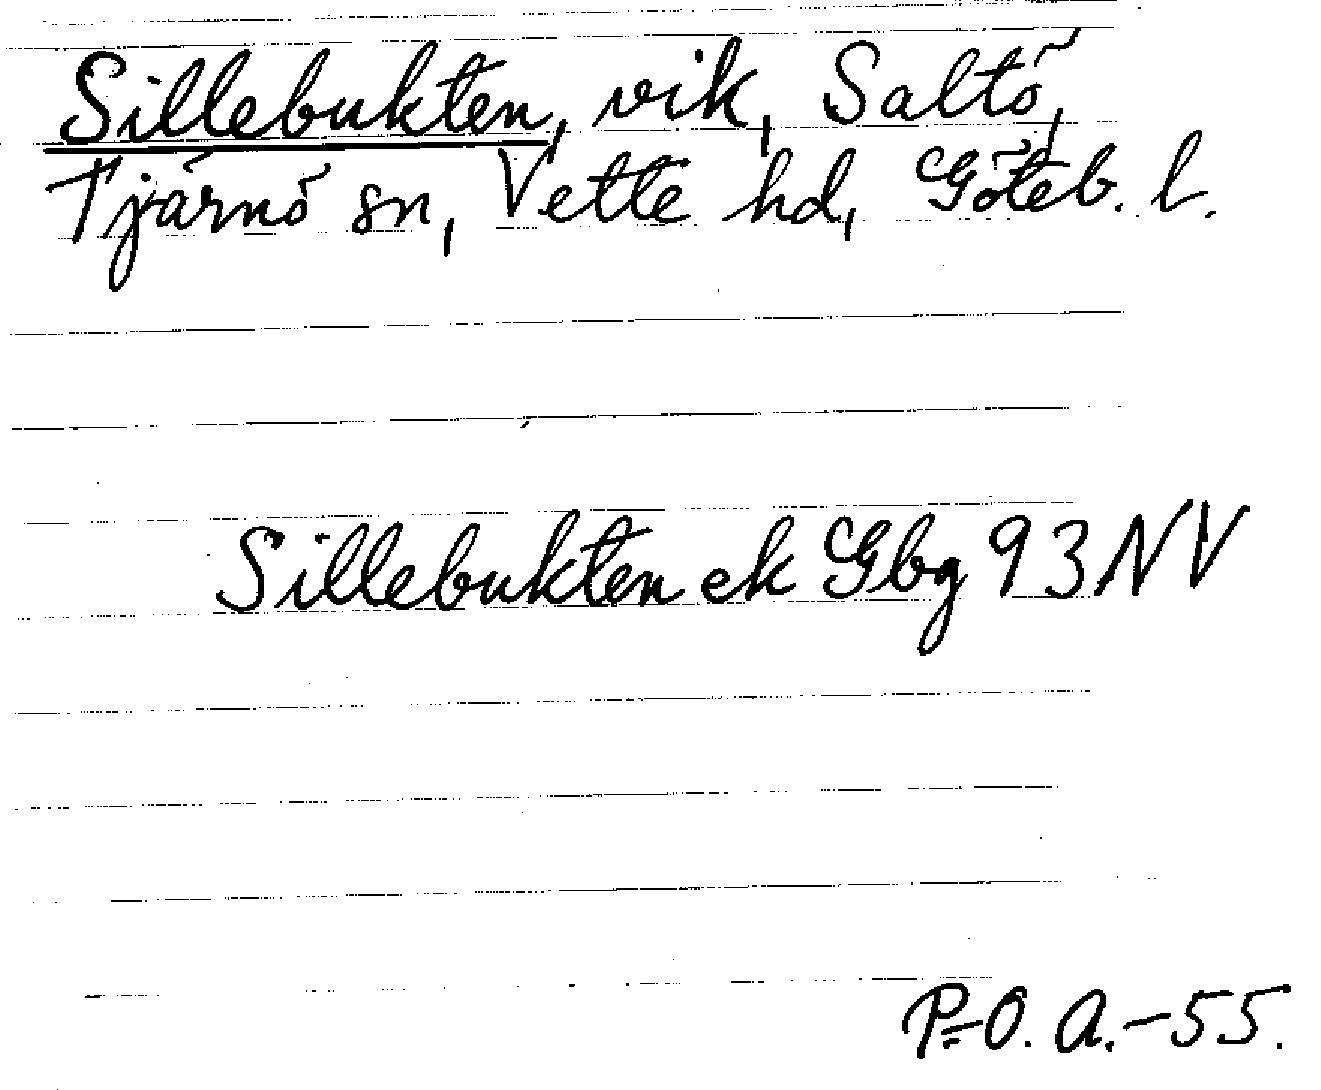 Sillebukten, vik, Saltö,
Tjärnö sn, Vette hd, Göteb. l.
Sillebukten ek Gbg 93 NV
P.-O. A.-55.